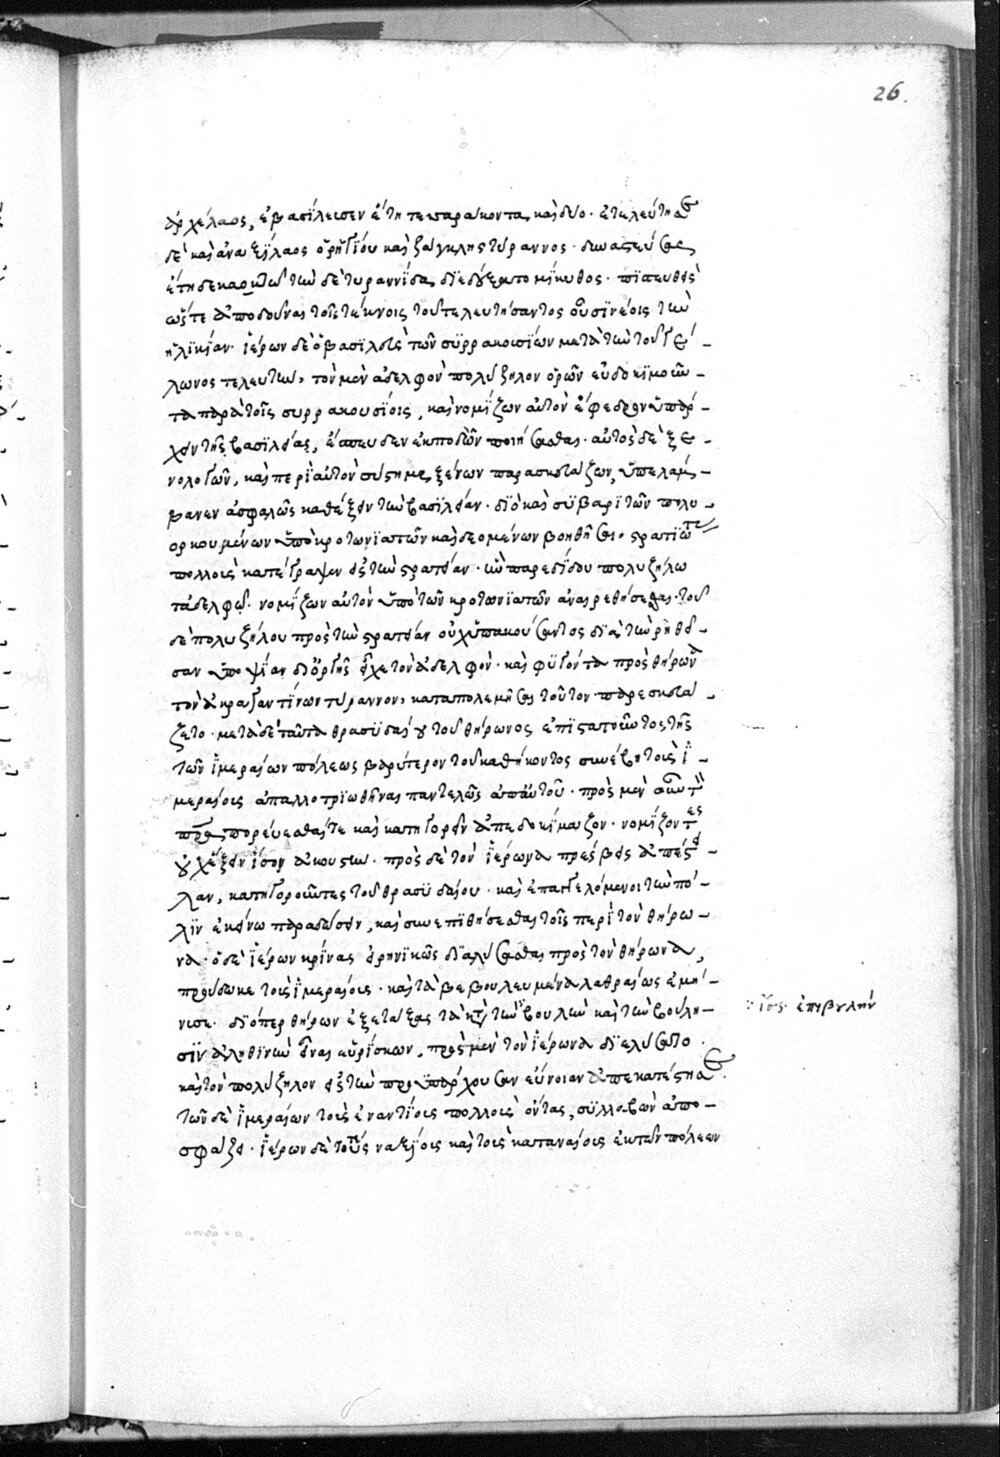 26.
ἀρχέλαος, ἐβασίλευσεν ἔτη τεσσαράκοντα καὶ δύο. ἐτελεύτησε
δὲ καὶ ἀναξίλαος ὁ ῥηγίου καὶ ζάγκλης τύραννος. δυναστεύσας
ἔτη δεκαοκτὼ τὴν δὲ τυραννίδα διεδέξατο μίκυθος. πιστευθεὶς
ὥστε ἀποδοῦναι τοῖς τέκνοις τοῦ τελευτήσαντος οὖσι νέοις τὴν
ἡλικίαν. ἱέρων δὲ ὁ βασιλεὺς τῶν συρρακουσίων μετὰ τὴν τοῦ γέ-
λωνος τελευτὴν, τὸν μὲν ἀδελφὸν πολύζηλον ὁρῶν εὐδοκιμοῦν-
τα παρὰ τοῖς συρρακουσίοις, καὶ νομίζων αὐτὸν ἔφεδρον ὑπάρ-
χειν τῆς βασιλείας, ἔσπευδεν ἐκποδῶν ποιήσασθαι. αὐτὸς δὲ ξε-
νολογῶν, καὶ περὶ αὐτὸν σύστημα ξένων παρασκευάζων, ὑπελάμ-
βανεν ἀσφαλῶς καθέξειν τὴν βασιλείαν. διὸ καὶ συβαριτῶν πολι-
ορκουμένων ὑπὸ κροτωνιατῶν καὶ δεομένων βοηθῆσαι, στρατιώτας
πολλοὺς κατέγραψεν εἰς τὴν στρατείαν. ἣν παρεδίδου πολυζήλω
τἀδελφῶ. νομίζων αὐτὸν ὑπὸ τῶν κροτωνιατῶν ἀναιρεθήσεσθαι. τοῦ
δὲ πολυζήλου πρὸς τὴν στρατείαν οὐχ ὑπακούσαντος διὰ τὴν ῥηθεῖ-
σαν ὑποψίαν δι ὀργῆς εἶχε τὸν ἀδελφόν. καὶ φυγόντα πρὸς θήρωνα
τὸν ἀκραγαντίνων τύραννον, καταπολεμῆσαι τοῦτον παρεσκευά-
ζετο. μετὰ δὲ ταῦτα θρασυδαίου τοῦ θήρωνος ἐπιστατοῦντος τῆς
τῶν ἱμεραίων πόλεως βαρύτερον τοῦ καθήκοντος συνέβη τοὺς ἱ-
μεραίους ἀπαλλοτριωθῆναι παντελῶς ἀπ αὐτοῦ. πρὸς μὲν οὖν τὸν
πατέρα πορεύεσθαί τε καὶ κατηγορεῖν ἀπεδοκίμαζον. νομίζοντες
οὐχ ἕξειν ἴσον ἀκουστήν. πρὸς δὲ τὸν ἱέρωνα πρέσβεις ἀπέστει-
λαν, κατηγοροῦντες τοῦ θρασυδαίου. καὶ ἐπαγγελόμενοι τὴν πό-
λιν ἐκείνω παραδώσειν, καὶ συνεπιθήσεσθαι τοῖς περὶ τὸν θήρω-
να. ὁ δὲ ἱέρων κρίνας εἰρηνικῶς διαλύσασθαι πρὸς τὸν θήρωνα,
προύδωκε τοὺς ἱμεραίους. καὶ τὰ βεβουλευμένα λαθραίως ἐμή-
νισε. διόπερ θήρων ἐξετάξας τὰ κατὰ τὴν βουλὴν καὶ τὴν βούλη-
σιν ἀληθινὴν εἶναι εὑρίσκων, πρὸς μὲν τὸν ἱέρωνα διελύσατο.
καὶ τὸν πολύζηλον εἰς τὴν προϋπάρχουσαν εὔνοιαν ἀπεκατέστησε.
τῶν δὲ ἱμεραίων τοὺς ἐναντίους πολλοὺς ὄντας, συλλαβὼν ἀπέ-
σφαξε. ἱέρων δὲ τούς τε ναξίους καὶ τοὺς καταναίους ἐκ τῶν πόλεων
ἴσως ἐπιβουλήν